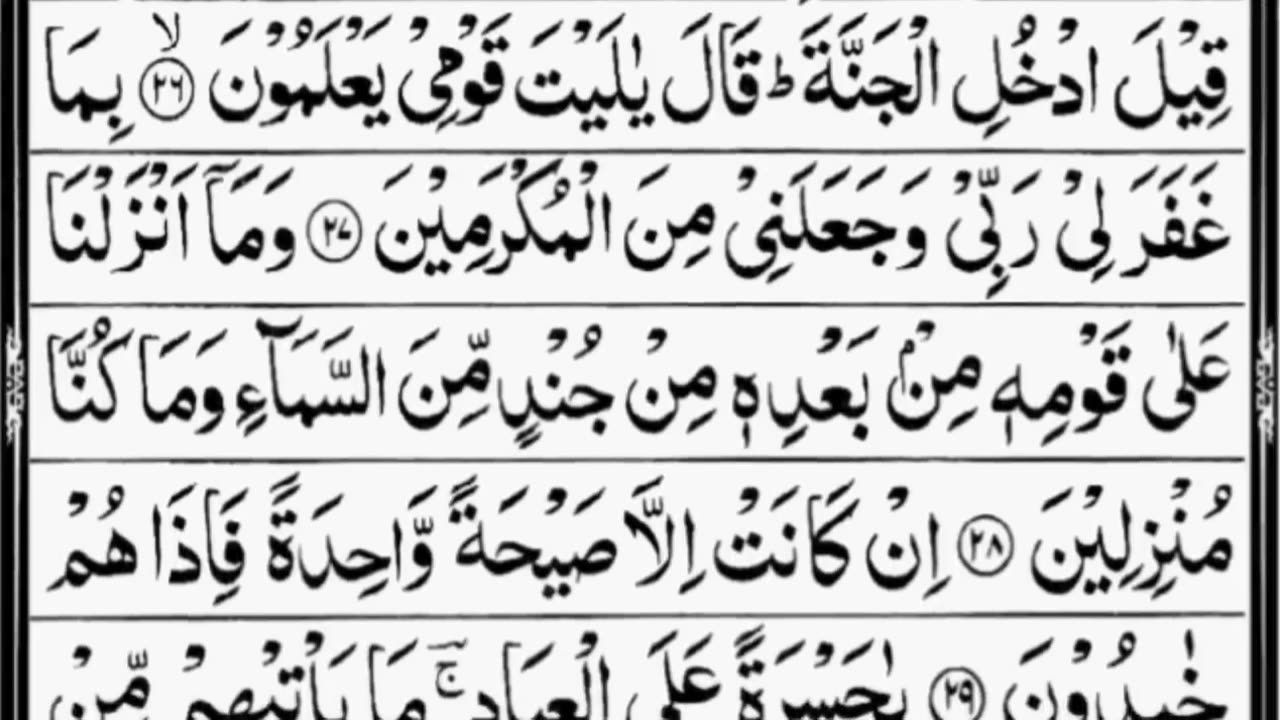 قِيْلَ ادْخُلِ الْجَنَّةَ ؕ قَالَ يٰلَيْتَ قَوْمِيْ يَعْلَمُوْنَ ۙ ﴿٢٦﴾ بِمَا
غَفَرَ لِيْ رَبِّيْ وَجَعَلَنِيْ مِنَ الْمُكْرَمِيْنَ ﴿٢٧﴾ وَمَاۤ اَنْزَلْنَا
عَلٰى قَوْمِهٖ مِنْۢ بَعْدِهٖ مِنْ جُنْدٍ مِّنَ السَّمَآءِ وَمَا كُنَّا
مُنْزِلِيْنَ ﴿٢٨﴾ اِنْ كَانَتْ اِلَّا صَيْحَةً وَّاحِدَةً فَاِذَا هُمْ
خٰمِدُوْنَ ﴿٢٩﴾ يٰحَسْرَةً عَلَى الْعِبَادِ ۚ مَا يَاْتِيْهِمْ مِّنْ